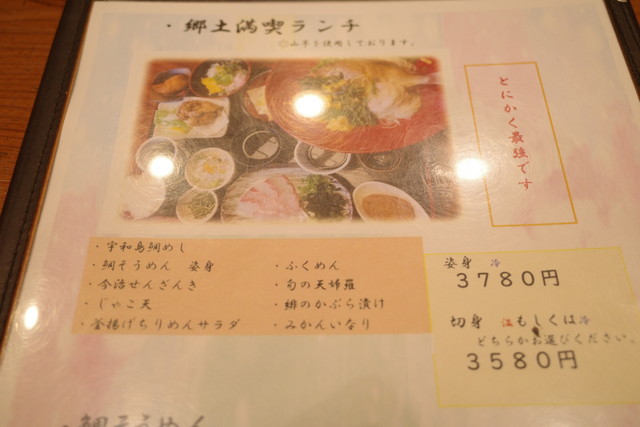 ・郷土満喫ランチ
◎山芋を使用しております。
とにかく最強です
・宇和島鯛めし
・鯛そうめん 姿身
・今治せんざんき
・じゃこ天
・釜揚げちりめんサラダ
・ふくめん
・旬の天婦羅
・緋のかぶら漬け
・みかんいなり
姿身 冷
3780円
切身 温もしくは冷
どちらかお選びください。
3580円
・鯛そうめん